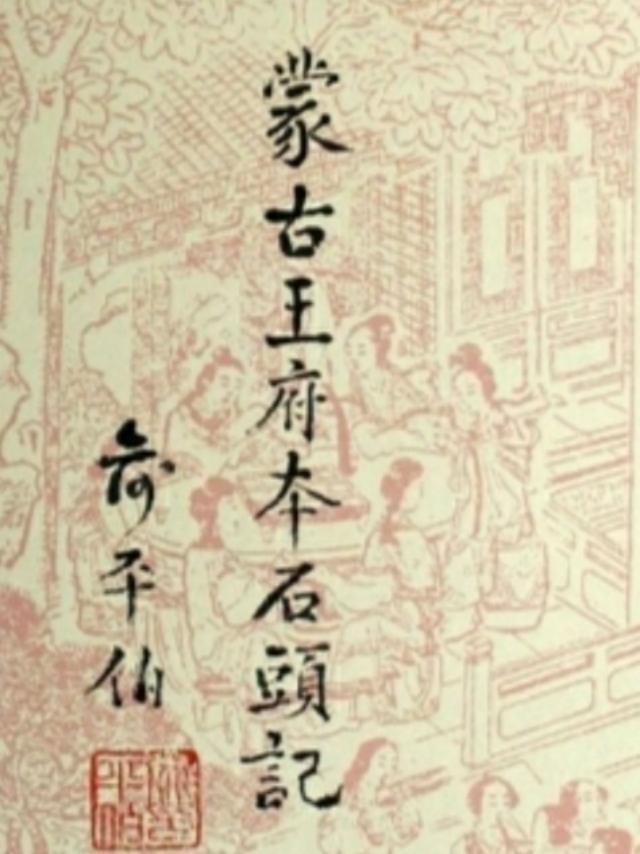 蒙古王府本石頭記
俞平伯